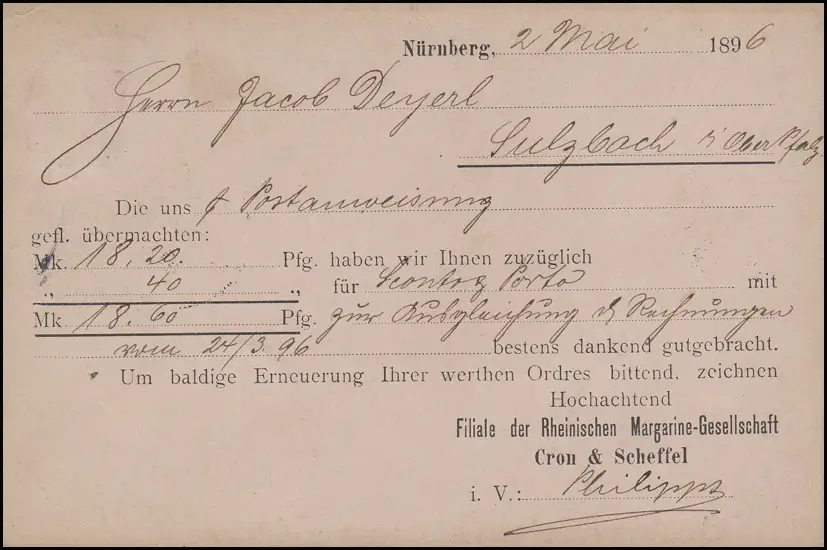 Nürnberg, 2 Mai 1896
Herrn Jacob Deyerl
Sulzbach i/ Oberpfalz
Die uns p Postanweisung
gefl. übermachten:
Mk. 18. 20. Pfg. haben wir Ihnen zuzüglich
„ 40 „ für Sconto & Porto mit
Mk. 18. 60 Pfg. zur Ausgleichung d/ Rechnungen
vom 24/3 96 bestens dankend gutgebracht.
Um baldige Erneuerung Ihrer werthen Ordres bittend, zeichnen
Hochachtend
Filiale der Rheinischen Margarine-Gesellschaft
Cron & Scheffel
i. V.: Philipps